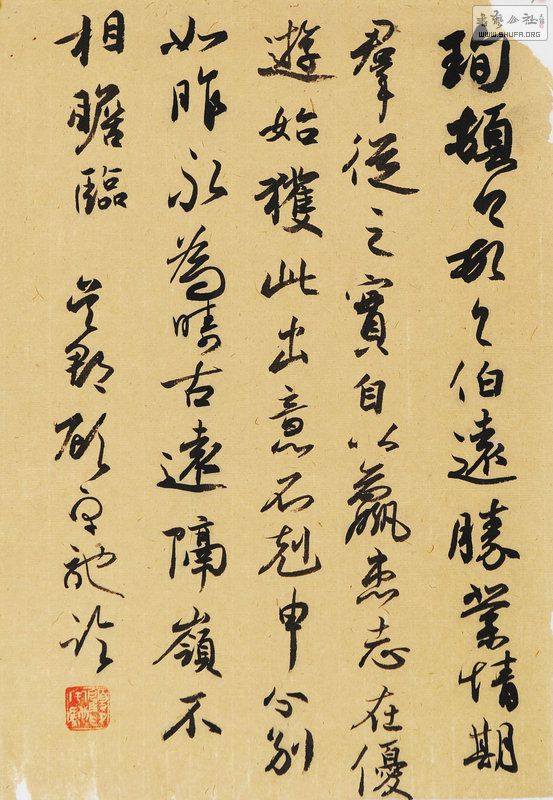 珣頓々首々伯遠勝業情期
羣從之寶自以羸患志在優
遊始獲此出意不剋申分別
如昨永為疇古遠隔嶺不
相瞻臨
書藝公社
WWW.SHUFA.ORG